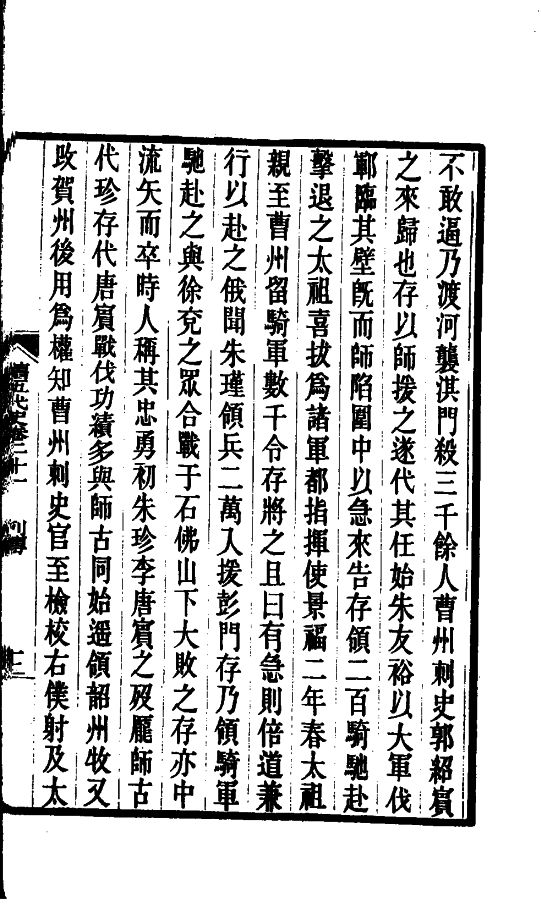 不敢逼乃渡河襲淇門殺三千餘人曹州刺史郭紹賓
之來歸也存以師援之遂代其任始朱友裕以大軍伐
鄆臨其壁旣而師陷圍中以急來告存領二百騎馳赴
擊退之太祖喜拔爲諸軍都指揮使景福二年春太祖
親至曹州留騎軍數千令存將之且曰有急則倍道兼
行以赴之俄聞朱瑾領兵二萬入援彭門存乃領騎軍
馳赴之與徐兗之眾合戰于石佛山下大敗之存亦中
流矢而卒時人稱其忠勇初朱珍李唐賓之歿龐師古
代珍存代唐賓戰伐功績多與師古同始遥領韶州牧又
攺賀州後用爲權知曹州刺史官至檢校右僕射及太
五代史卷二十一 列傳